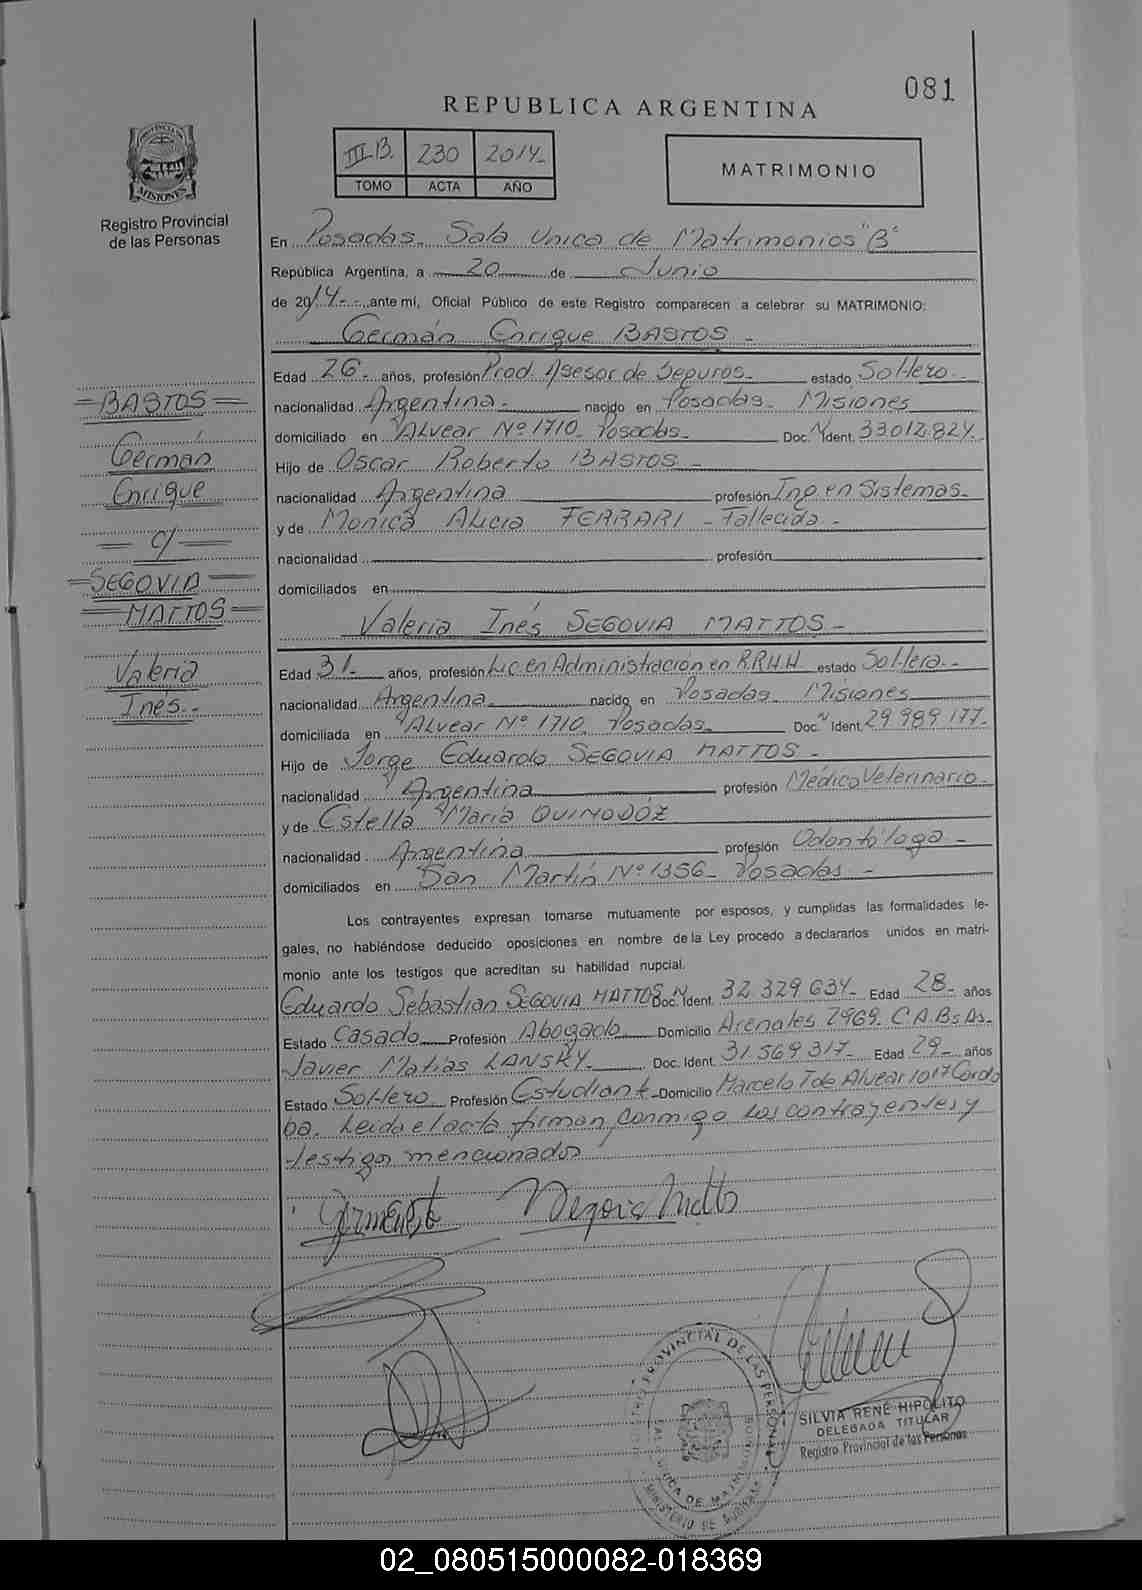 081
REPUBLICA ARGENTINA
PROVINCIA DE
MISIONES
Registro Provincial
de las Personas
III.B. 230 2014-
TOMO ACTA AÑO
MATRIMONIO
En Posadas. Sala Unica de Matrimonios "B"
República Argentina, a 20 de Junio
de 2014- ante mí, Oficial Público de este Registro comparecen a celebrar su MATRIMONIO:
Germán Enrique BASTOS -
Edad 26- años, profesión Prod. Asesor de Seguros- estado Soltero-
nacionalidad Argentina- nacido en Posadas- Misiones
domiciliado en Alvear Nº 1710. Posadas- Doc. N Ident. 33.012.824-
Hijo de Oscar Roberto BASTOS -
nacionalidad Argentina profesión Ing en Sistemas-
y de Monica Alicia FERRARI - Fallecida -
nacionalidad profesión
domiciliados en
Valeria Inés SEGOVIA MATTOS -
Edad 31- años, profesión Lic. en Administración en RR.H.H. estado Soltera-
nacionalidad Argentina- nacido en Posadas Misiones
domiciliada en Alvear Nº 1710. Posadas- Doc. N Ident. 29 989 177-
Hijo de Jorge Eduardo SEGOVIA MATTOS -
nacionalidad Argentina profesión Médico Veterinario-
y de Estella María QUINODÓZ
nacionalidad Argentina profesión Odontóloga -
domiciliados en San Martín Nº 1356- Posadas -
Los contrayentes expresan tomarse mutuamente por esposos, y cumplidas las formalidades le-
gales, no habiéndose deducido oposiciones en nombre de la Ley procedo a declararlos unidos en matri-
monio ante los testigos que acreditan su habilidad nupcial.
Eduardo Sebastian SEGOVIA MATTOS Doc. N Ident. 32 329 634- Edad 28- años
Estado Casado Profesión Abogado Domicilio Arenales 2969. C.A.Bs As-
Javier Matías LANSKY- Doc. Ident. 31 569 317- Edad 29- años
Estado Soltero Profesión Estudiante- Domicilio Marcelo T de Alvear 1017 Cordo
ba. Leida el acta firman conmigo los contrayentes y
testigos mencionados
=BASTOS=
Germán
Enrique
= c/ =
=SEGOVIA=
=MATTOS=
Valeria
Inés.-
Segovia Mattos
SILVIA RENE HIPOLITO
DELEGADA TITULAR
Registro Provincial de las Personas
REGISTRO PROVINCIAL DE LAS PERSONAS
SALA UNICA DE MATRIMONIOS
MINISTERIO DE
02_080515000082-018369